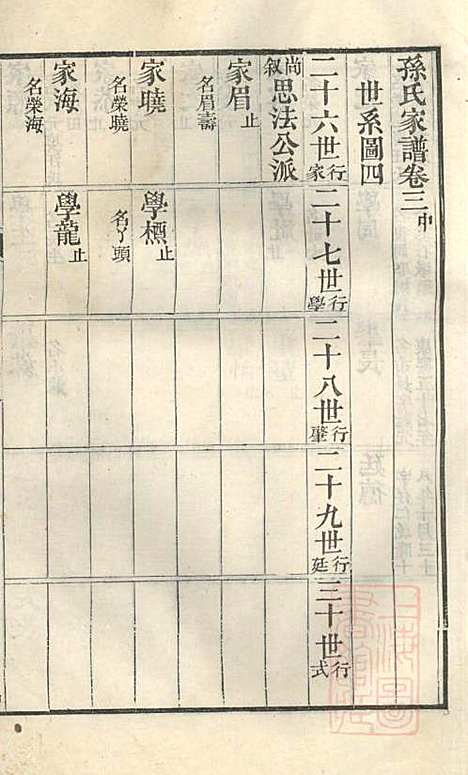 孫氏家譜卷三中
世系圖四
二十六世家行 二十七世學行 二十八世肇行 二十九世廷行 三十世式行
尚叙思法公派
家眉止
名眉壽
家曉 學標止
名榮曉 名丫頭
家海 學龍止
名榮海